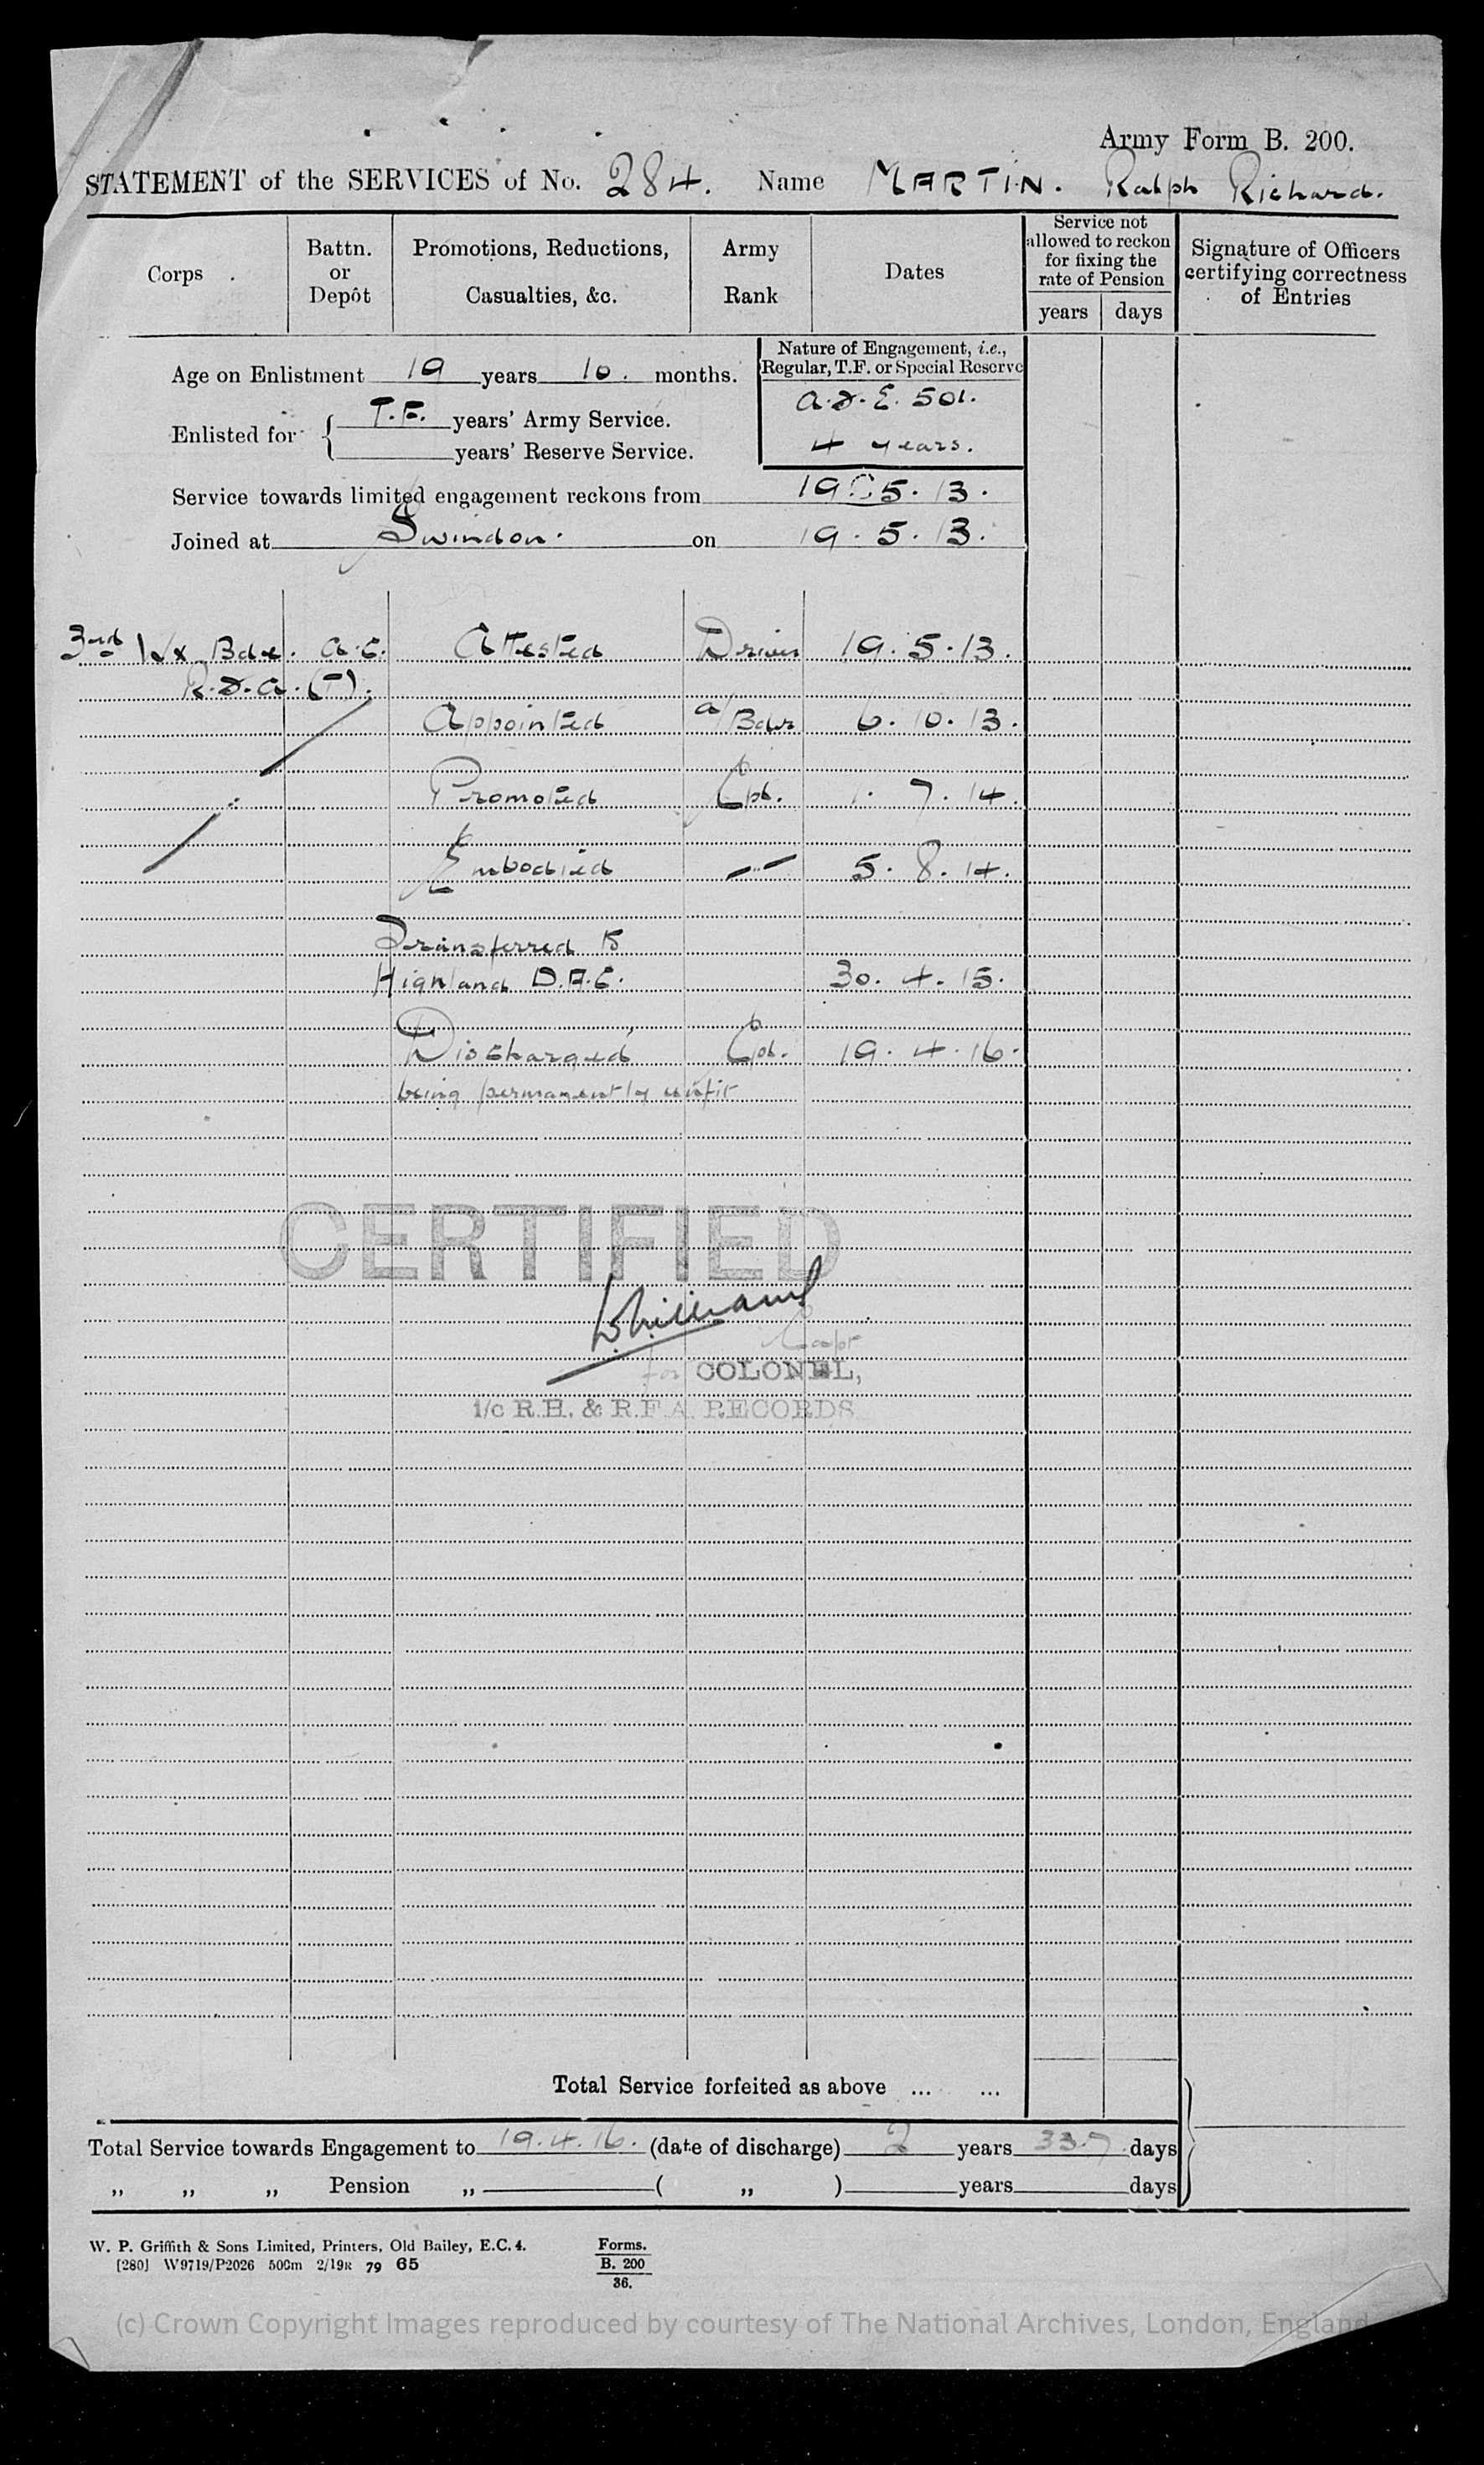 Army Form B. 200.
STATEMENT of the SERVICES of No. 284. Name MARTIN. Ralph Richard.
Corps
Battn. or Depôt
Promotions, Reductions, Casualties, &c.
Army Rank
Dates
Service not allowed to reckon for fixing the rate of Pension
years days
Signature of Officers certifying correctness of Entries
Age on Enlistment 19 years 10. months.
Nature of Engagement, i.e., Regular, T.F. or Special Reserve
A.F.E. 501.
4 years.
Enlisted for { T.F. years' Army Service.
years' Reserve Service.
Service towards limited engagement reckons from 19.5.13.
Joined at Swindon. on 19.5.13.
3rd Wx Bde. A.C. Attested Driver 19.5.13.
R.F.A. (T).
Appointed a/Bdr 6.10.13.
Promoted Cpl. 1.7.14.
Embodied —"— 5.8.14.
Transferred to
Highland D.A.C. 30.4.15.
Discharged Cpl. 19.4.16.
being permanently unfit
CERTIFIED
Capt
for COLONEL,
i/c R.H. & R.F.A. RECORDS
Total Service forfeited as above ... ...
Total Service towards Engagement to 19.4.16. (date of discharge) 2 years 337. days
„ „ „ Pension „ ( „ ) years days
W. P. Griffith & Sons Limited, Printers, Old Bailey, E.C. 4.
[280] W9719/P2026 500m 2/19R 79 65
Forms.
B. 200
36.
(c) Crown Copyright Images reproduced by courtesy of The National Archives, London, England